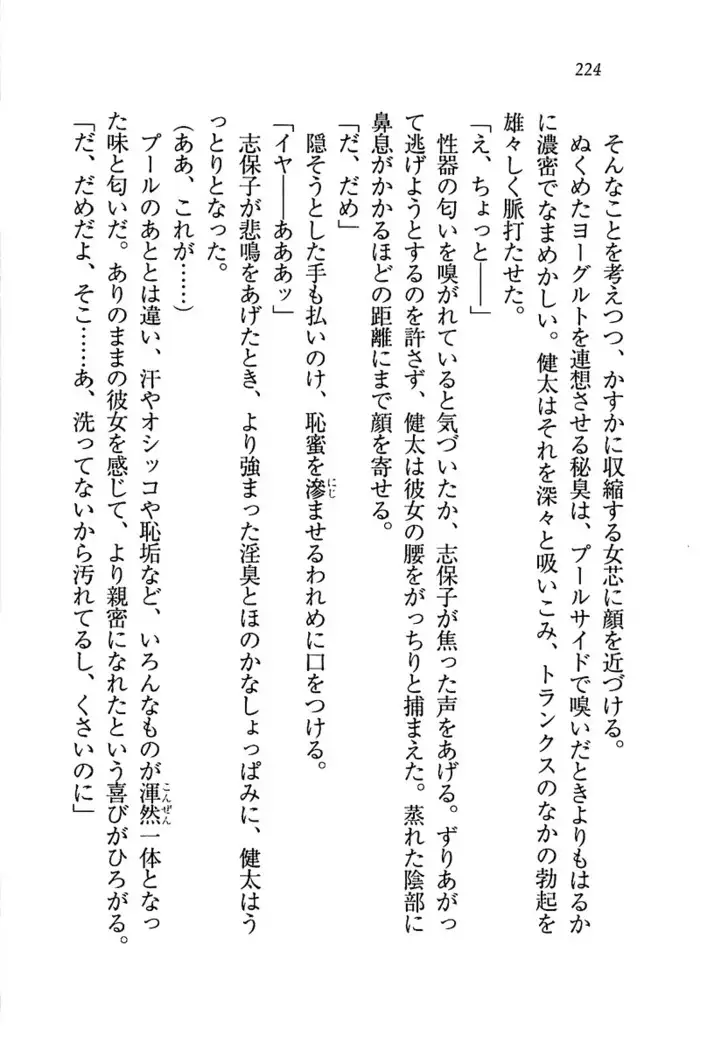 224
そんなことを考えつつ、かすかに収縮する女芯に顔を近づける。
ぬくめたヨーグルトを連想させる秘臭は、プールサイドで嗅いだときよりもはるか
に濃密でなまめかしい。健太はそれを深々と吸いこみ、トランクスのなかの勃起を
雄々しく脈打たせた。
「え、ちょっと――」
性器の匂いを嗅がれていると気づいたか、志保子が焦った声をあげる。ずりあがっ
て逃げようとするのを許さず、健太は彼女の腰をがっちりと捕まえた。蒸れた陰部に
鼻息がかかるほどの距離にまで顔を寄せる。
「だ、だめ」
隠そうとした手も払いのけ、恥蜜を滲(にじ)ませるわれめに口をつける。
「イヤ――あああッ」
志保子が悲鳴をあげたとき、より強まった淫臭とほのかなしょっぱみに、健太はう
っとりとなった。
(ああ、これが……)
プールのあととは違い、汗やオシッコや恥垢など、いろんなものが渾然(こんぜん)一体となっ
た味と匂いだ。ありのままの彼女を感じて、より親密になれたという喜びがひろがる。
「だ、だめだよ、そこ……あ、洗ってないから汚れてるし、くさいのに」